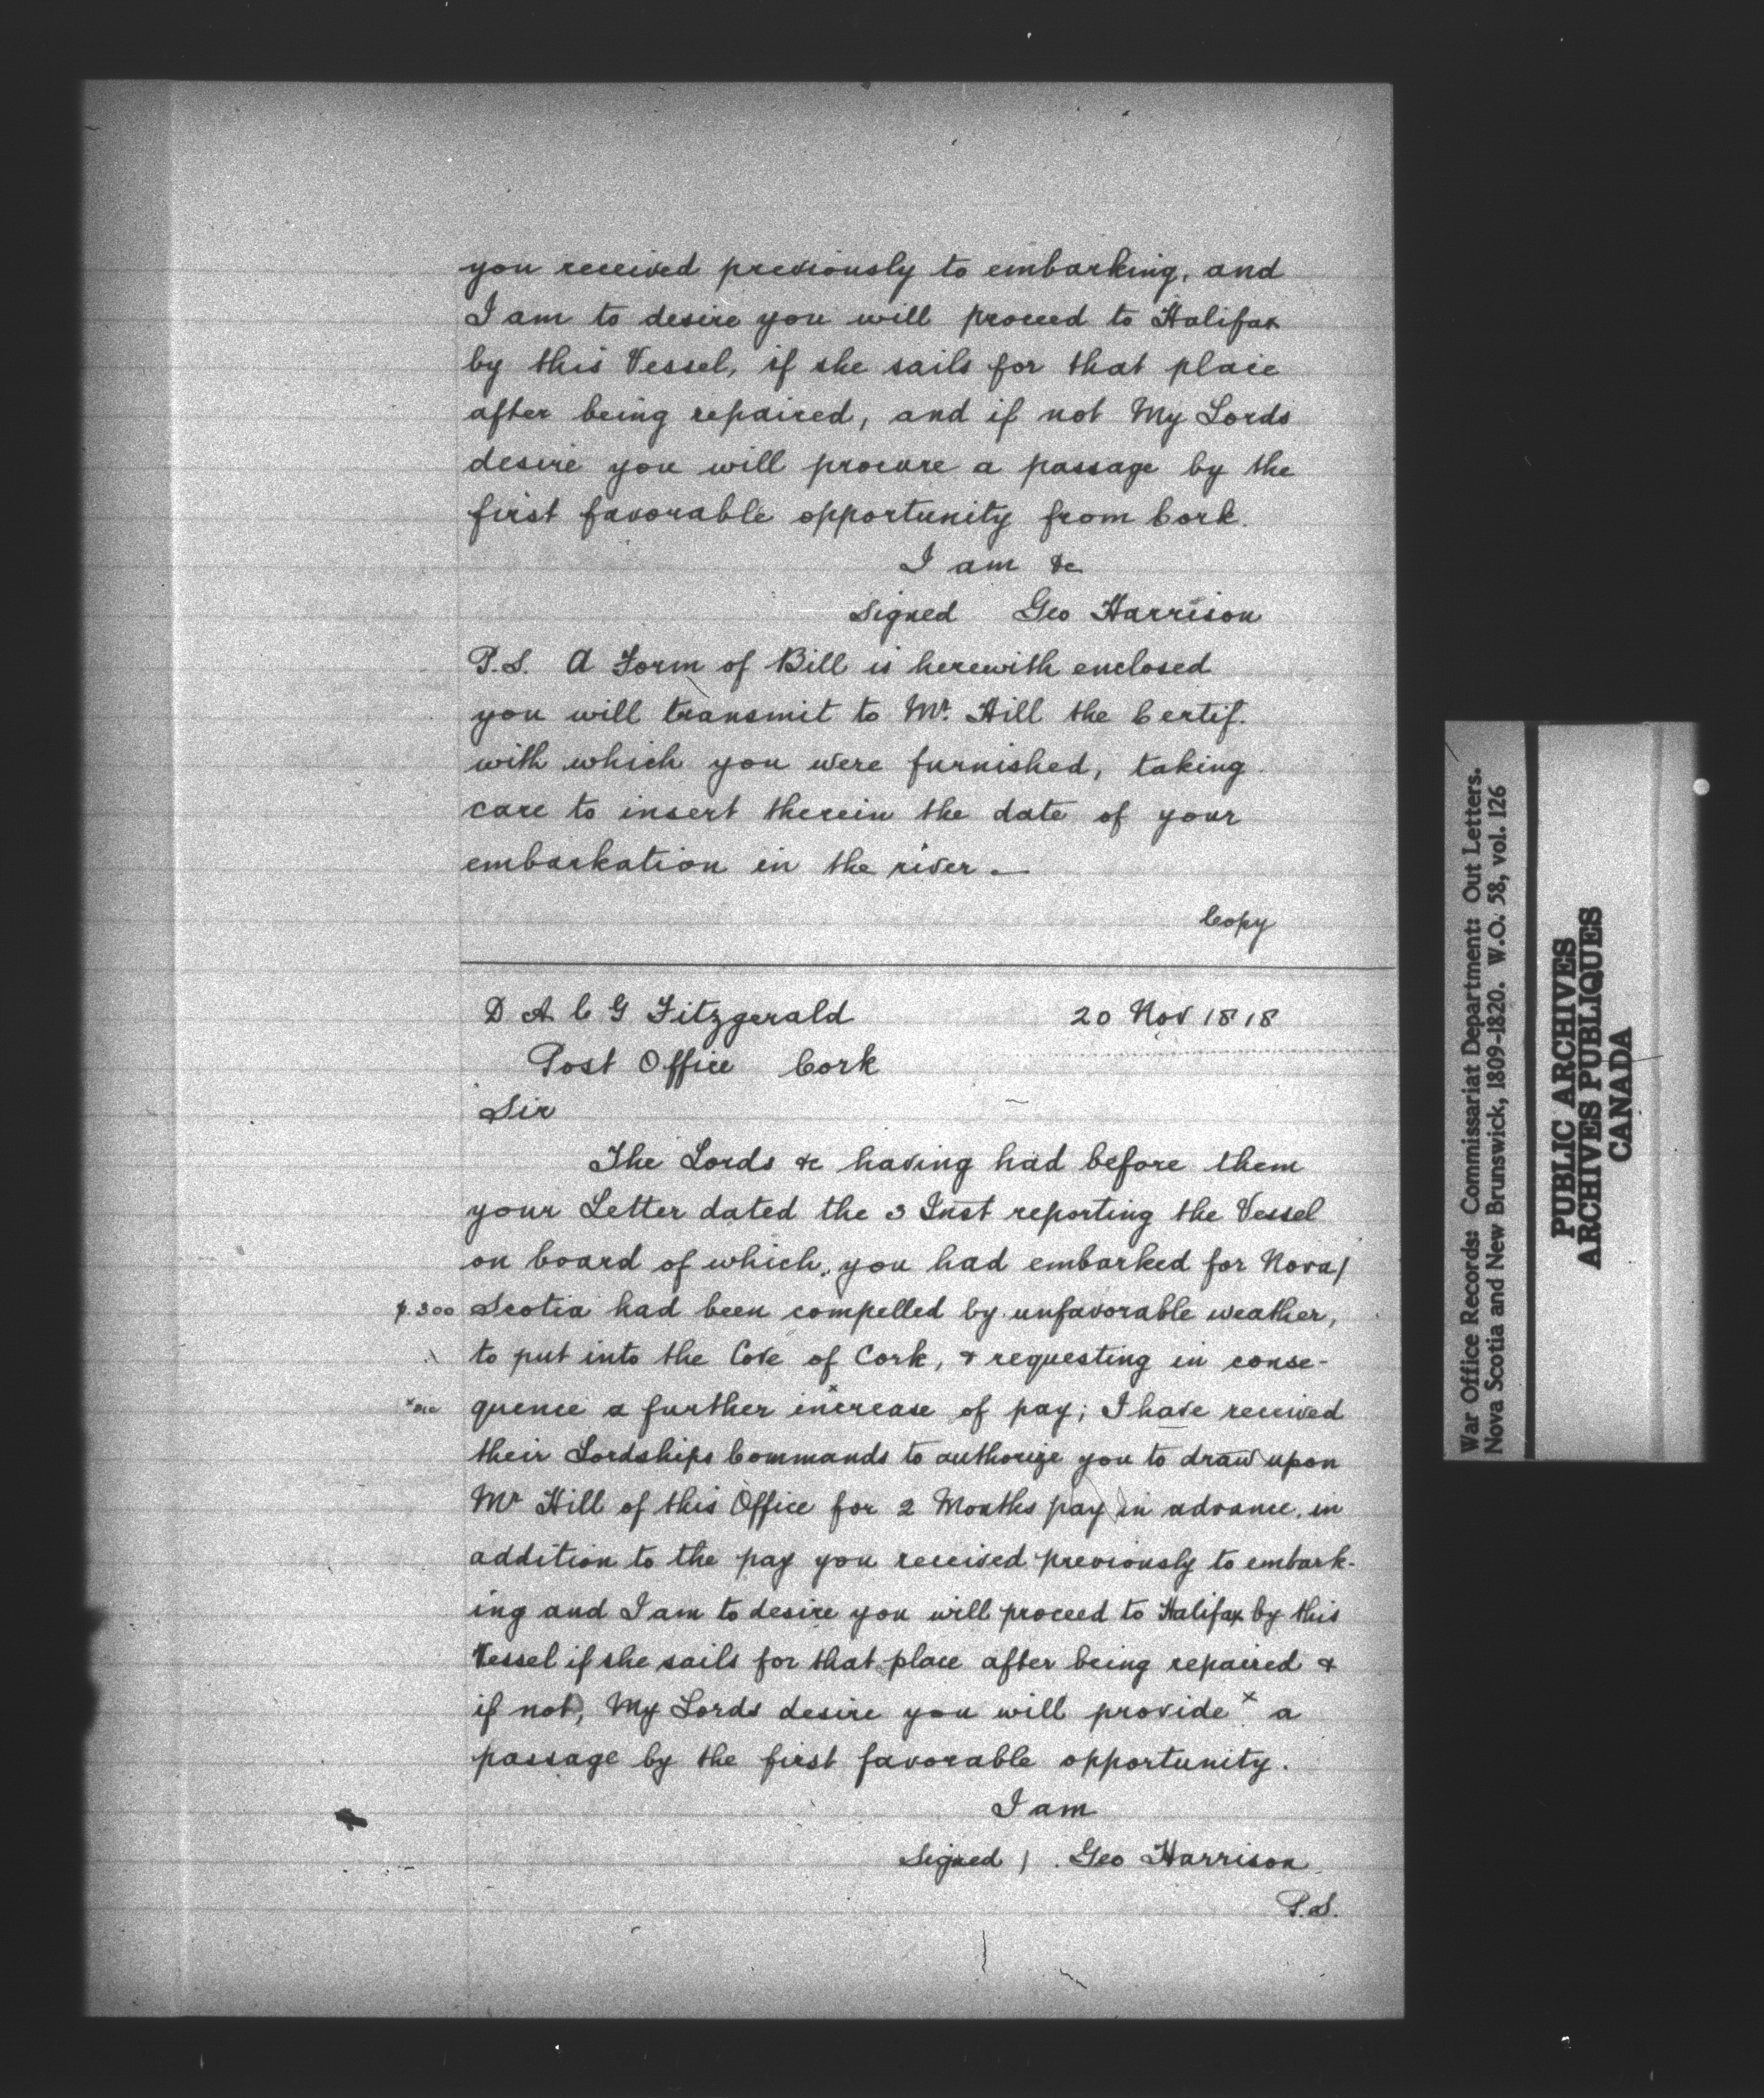 you received previously to embarking, and
I am to desire you will proceed to Halifax
by this Vessel, if she sails for that place
after being repaired, and if not My Lords
desire you will procure a passage by the
first favorable opportunity from Cork.
I am &c
Signed Geo Harrison
P.S. A Form of Bill is herewith enclosed
you will transmit to Mr. Hill the Certif.
with which you were furnished, taking
care to insert therein the date of your
embarkation in the river. —
Copy
D A C G Fitzgerald 20 Nov 1818
Post Office Cork
Sir
The Lords &c having had before them
your Letter dated the 3 Inst reporting the Vessel
on board of which, you had embarked for Nova/
p.300 Scotia had been compelled by unfavorable weather,
to put into the Cove of Cork, & requesting in conse-
quence a further increase of pay; I have received
their Lordships Commands to authorize you to draw upon
Mr Hill of this Office for 2 Months pay in advance, in
addition to the pay you received previously to embark-
ing and I am to desire you will proceed to Halifax by this
Vessel if she sails for that place after being repaired &
if not, My Lords desire you will provide x a
passage by the first favorable opportunity.
I am
Signed / Geo Harrison
P.S.
War Office Records: Commissariat Department: Out Letters.
Nova Scotia and New Brunswick, 1809-1820. W.O. 58, vol. 126
PUBLIC ARCHIVES
ARCHIVES PUBLIQUES
CANADA